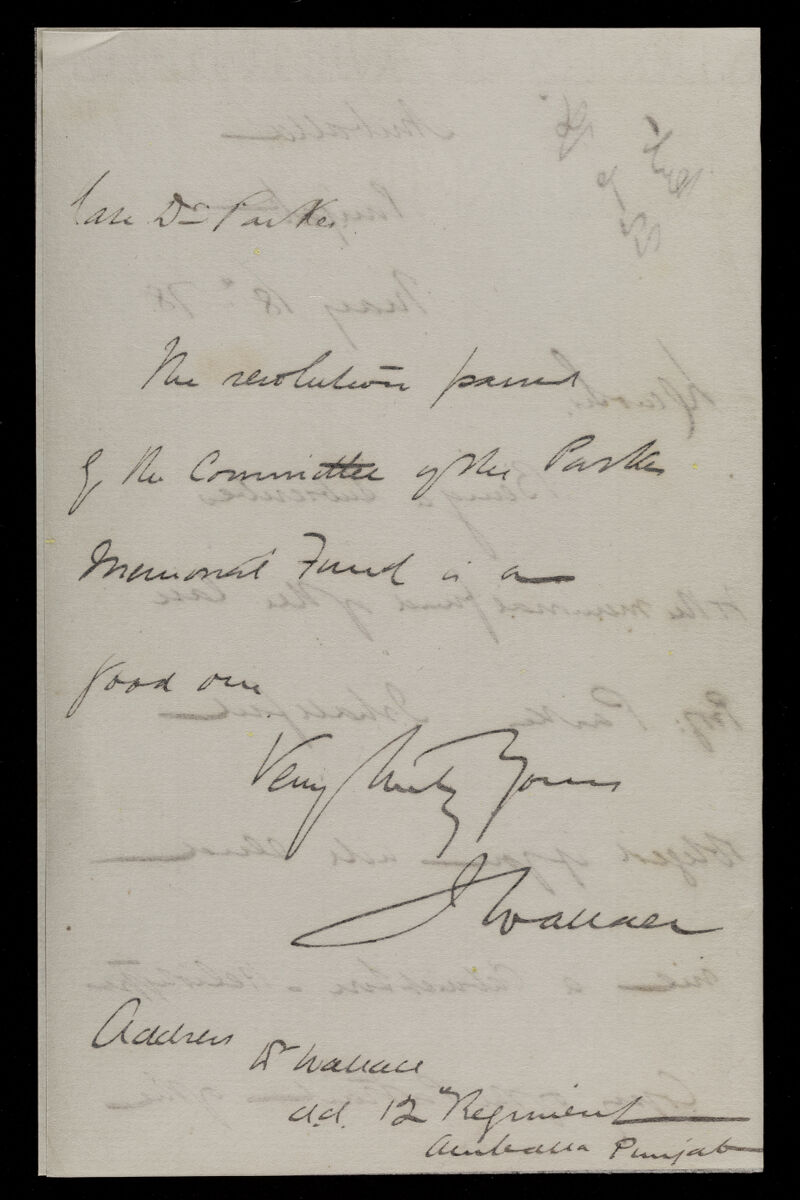 late Dr Parkes
The resolution passed
by the Committee of the Parkes
Memorial Fund is a
good one
Very truly Yours
J Wallace
Address
Dr Wallace
12th Regiment
Umballa Punjab